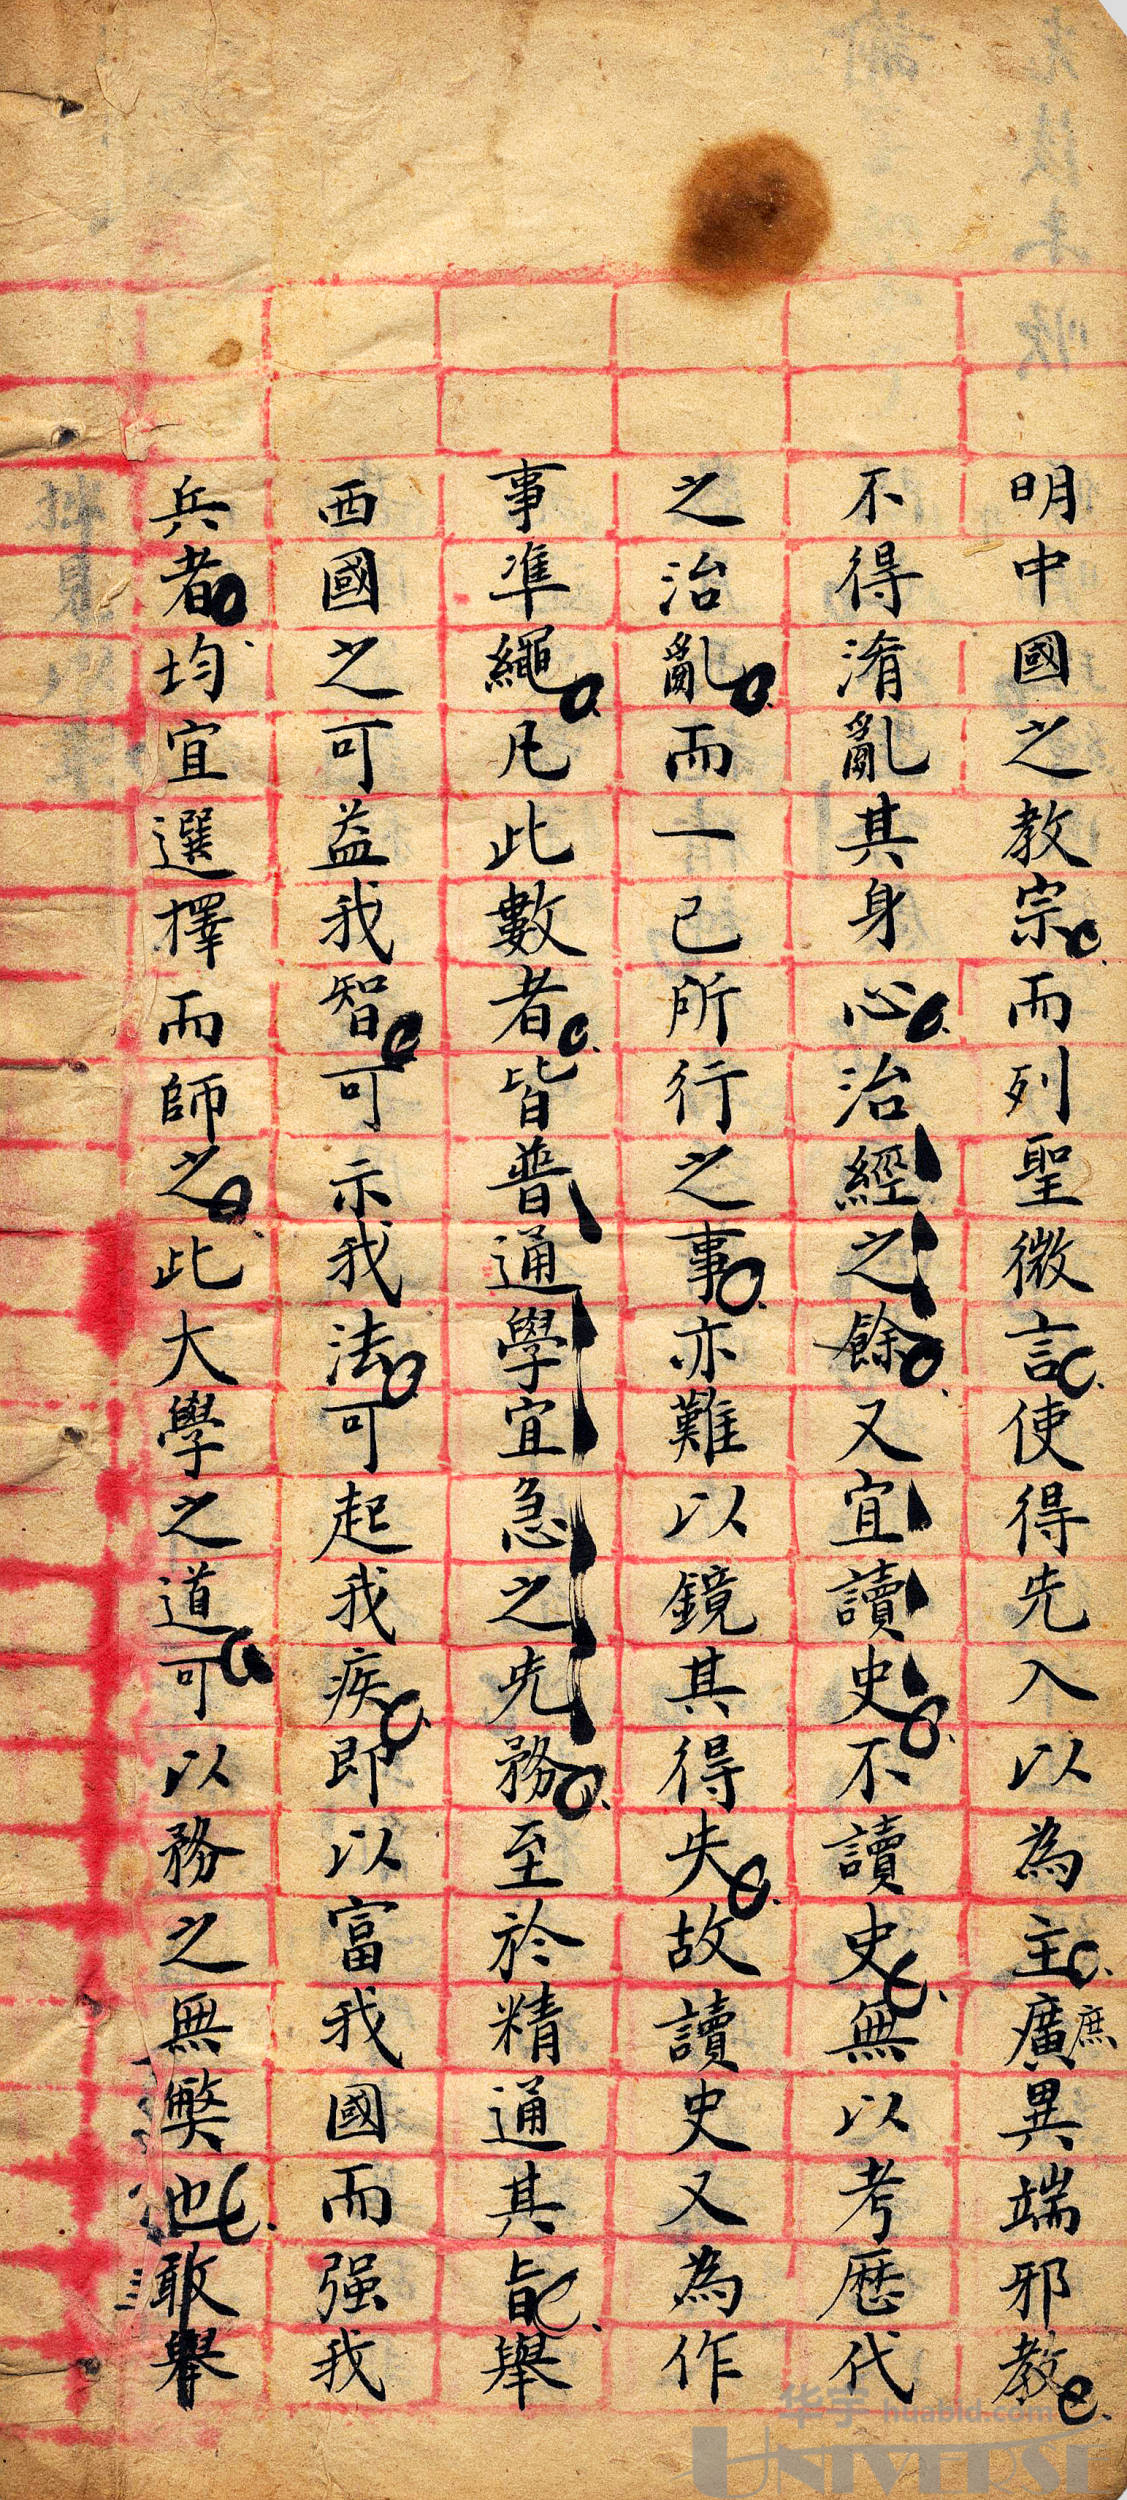 明中國之教宗而列聖微言使得先入以為主廣庶異端邪教
不得淆亂其身心治經之餘又宜讀史不讀史無以考歷代
之治亂而一己所行之事亦難以鏡其得失故讀史又為作
事準繩凡此數者皆普通學宜急之先務至於精通其旨舉
西國之可益我智可示我法可起我疾即以富我國而强我
兵者均宜選擇而師之此大學之道可以務之無弊也敢舉
华宇 huabid.com
UNIVERSE